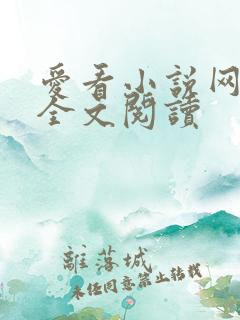 愛看小說网
全文閱讀
離落城
未经同意禁止转载